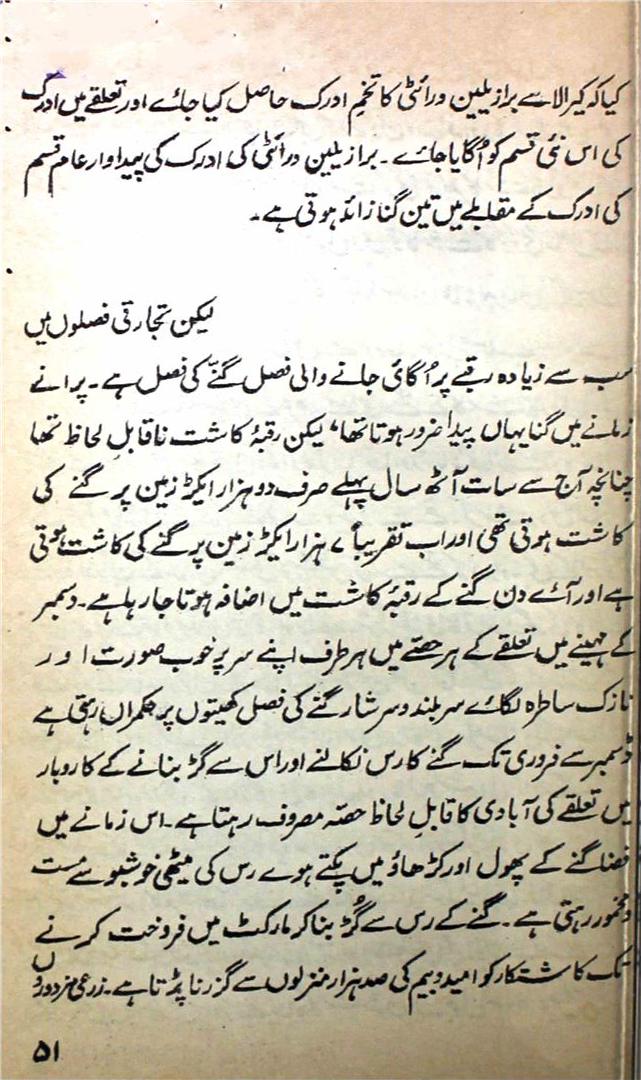 کیا کہ کیرالا سے برازیلین ورائٹی کا تخم ادرک حاصل کیا جائے اور تعلقے میں ادرک
کی اس نئی قسم کو اُگایا جائے ۔ برازیلین ورائٹی کی ادرک کی پیداوار عام قسم
کی ادرک کے مقابلے میں تین گنا زائد ہوتی ہے ۔
لیکن تجارتی فصلوں میں
سب سے زیادہ رقبے پر اُگائی جانے والی فصل گنّے کی فصل ہے ۔ پرانے
زمانے میں گنا یہاں پیدا ضرور ہوتا تھا، لیکن رقبۂ کاشت ناقابلِ لحاظ تھا
چنانچہ آج سے سات آٹھ سال پہلے صرف دو ہزار ایکڑ زمین پر گنے کی
کاشت ہوتی تھی اور اب تقریباً ۷ ہزار ایکڑ زمین پر گنے کی کاشت ہوتی
ہے اور آئے دن گنے کے رقبۂ کاشت میں اضافہ ہوتا جا رہا ہے ۔ دسمبر
کے مہینے میں تعلقے کے ہر حصّے میں ہر طرف اپنے سر پر خوب صورت اور
نازک ساطرہ لگائے سر بلند و سرشار گنے کی فصل کھیتوں پر حکمراں رہتی ہے
ڈسمبر سے فروری تک گنے کا رس نکالنے اور اس سے گڑ بنانے کے کاروبار
میں تعلقے کی آبادی کا قابلِ لحاظ حصّہ مصروف رہتا ہے ۔ اس زمانے میں
فضا گنے کے پھول اور کڑھاؤ میں پکتے ہوے رس کی میٹھی خوشبو سے مست
و مخمور رہتی ہے ۔ گنے کے رس سے گُڑ بنا کر مارکٹ میں فروخت کرنے
تک کاشتکار کو امید و بیم کی صد ہزار منزلوں سے گزرنا پڑتا ہے ۔ زرعی مزدوروں
۵۱